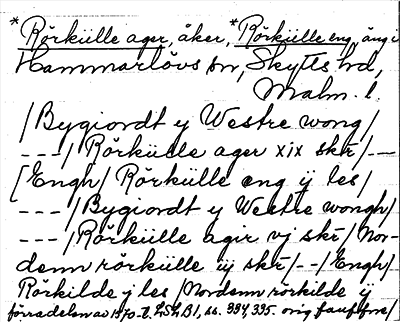 *Rörkülle ager, åker, *Rörkülle eng, äng i
Hammarlövs sn, Skytts hd,
Malm. l.
/Bygiordt y Westre wong/
---/ Rörkülle ager xix sker/--
[Engh/ Rörkülle eng ij les/
---/Bygiordt y Westre wongh/
---/Rörkülle agir vj sker/ Nor-
denn rörkülle iij sker/--/Engh/
Rörkilde ij les / Nordenn rörkilde ij
förradelen av 1570-t. LSLB1, ss. 394, 395.